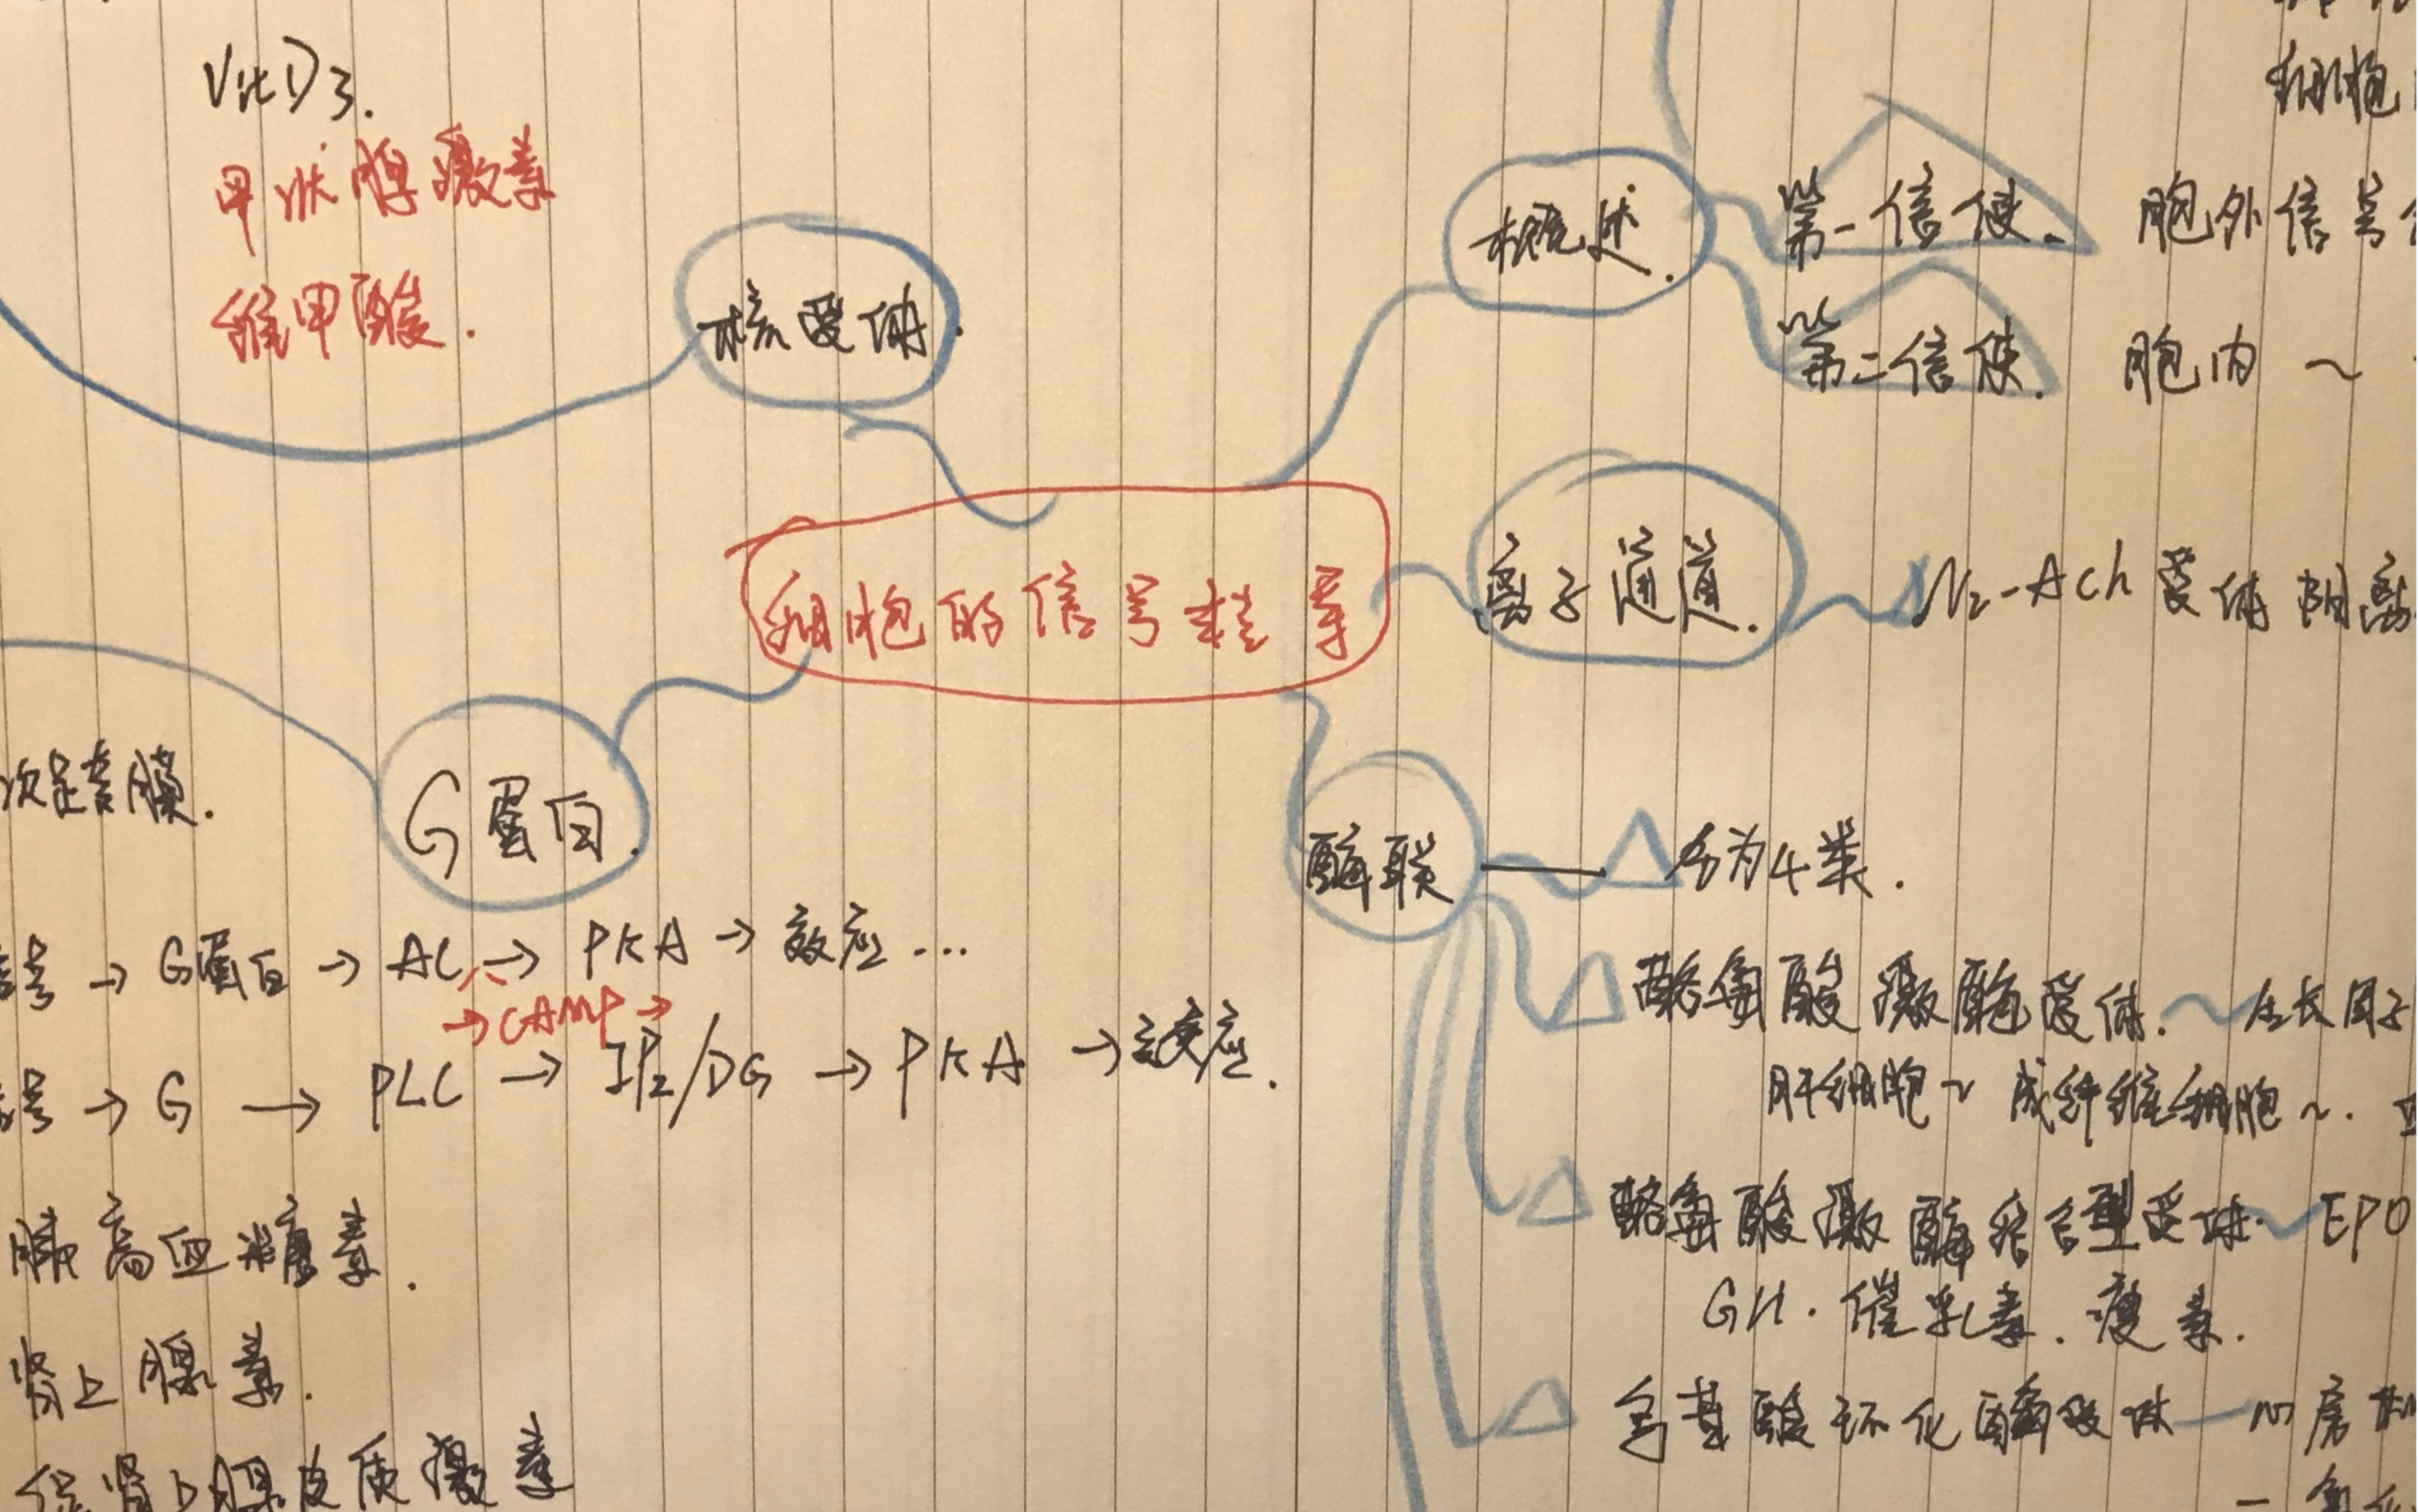 VitD3.
甲状腺激素
维甲酸.
核受体.
概述.
细胞
第一信使.
胞外信号
第二信使.
胞内 ~
细胞的信号转导
离子通道.
N2-ACh受体 阴离
次跨膜.
G蛋白.
酶联
分为4类.
号 → G蛋白 → AC → PKA → 效应...
→ CAMP →
号 → G → PLC → IP2/DG → PKA → 效应.
酪氨酸激酶受体. ~ 生长因子
肝细胞~ 成纤维细胞~.
酪氨酸激酶结合型受体 ~ EPO
GH. 催乳素. 瘦素.
鸟苷酸环化酶受体 — 心房
胰高血糖素.
肾上腺素.
促肾上腺皮质激素